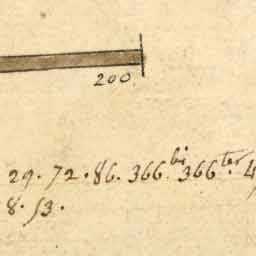 200.
29. 72. 86. 366 bis 366 ter. 4
8. 53.